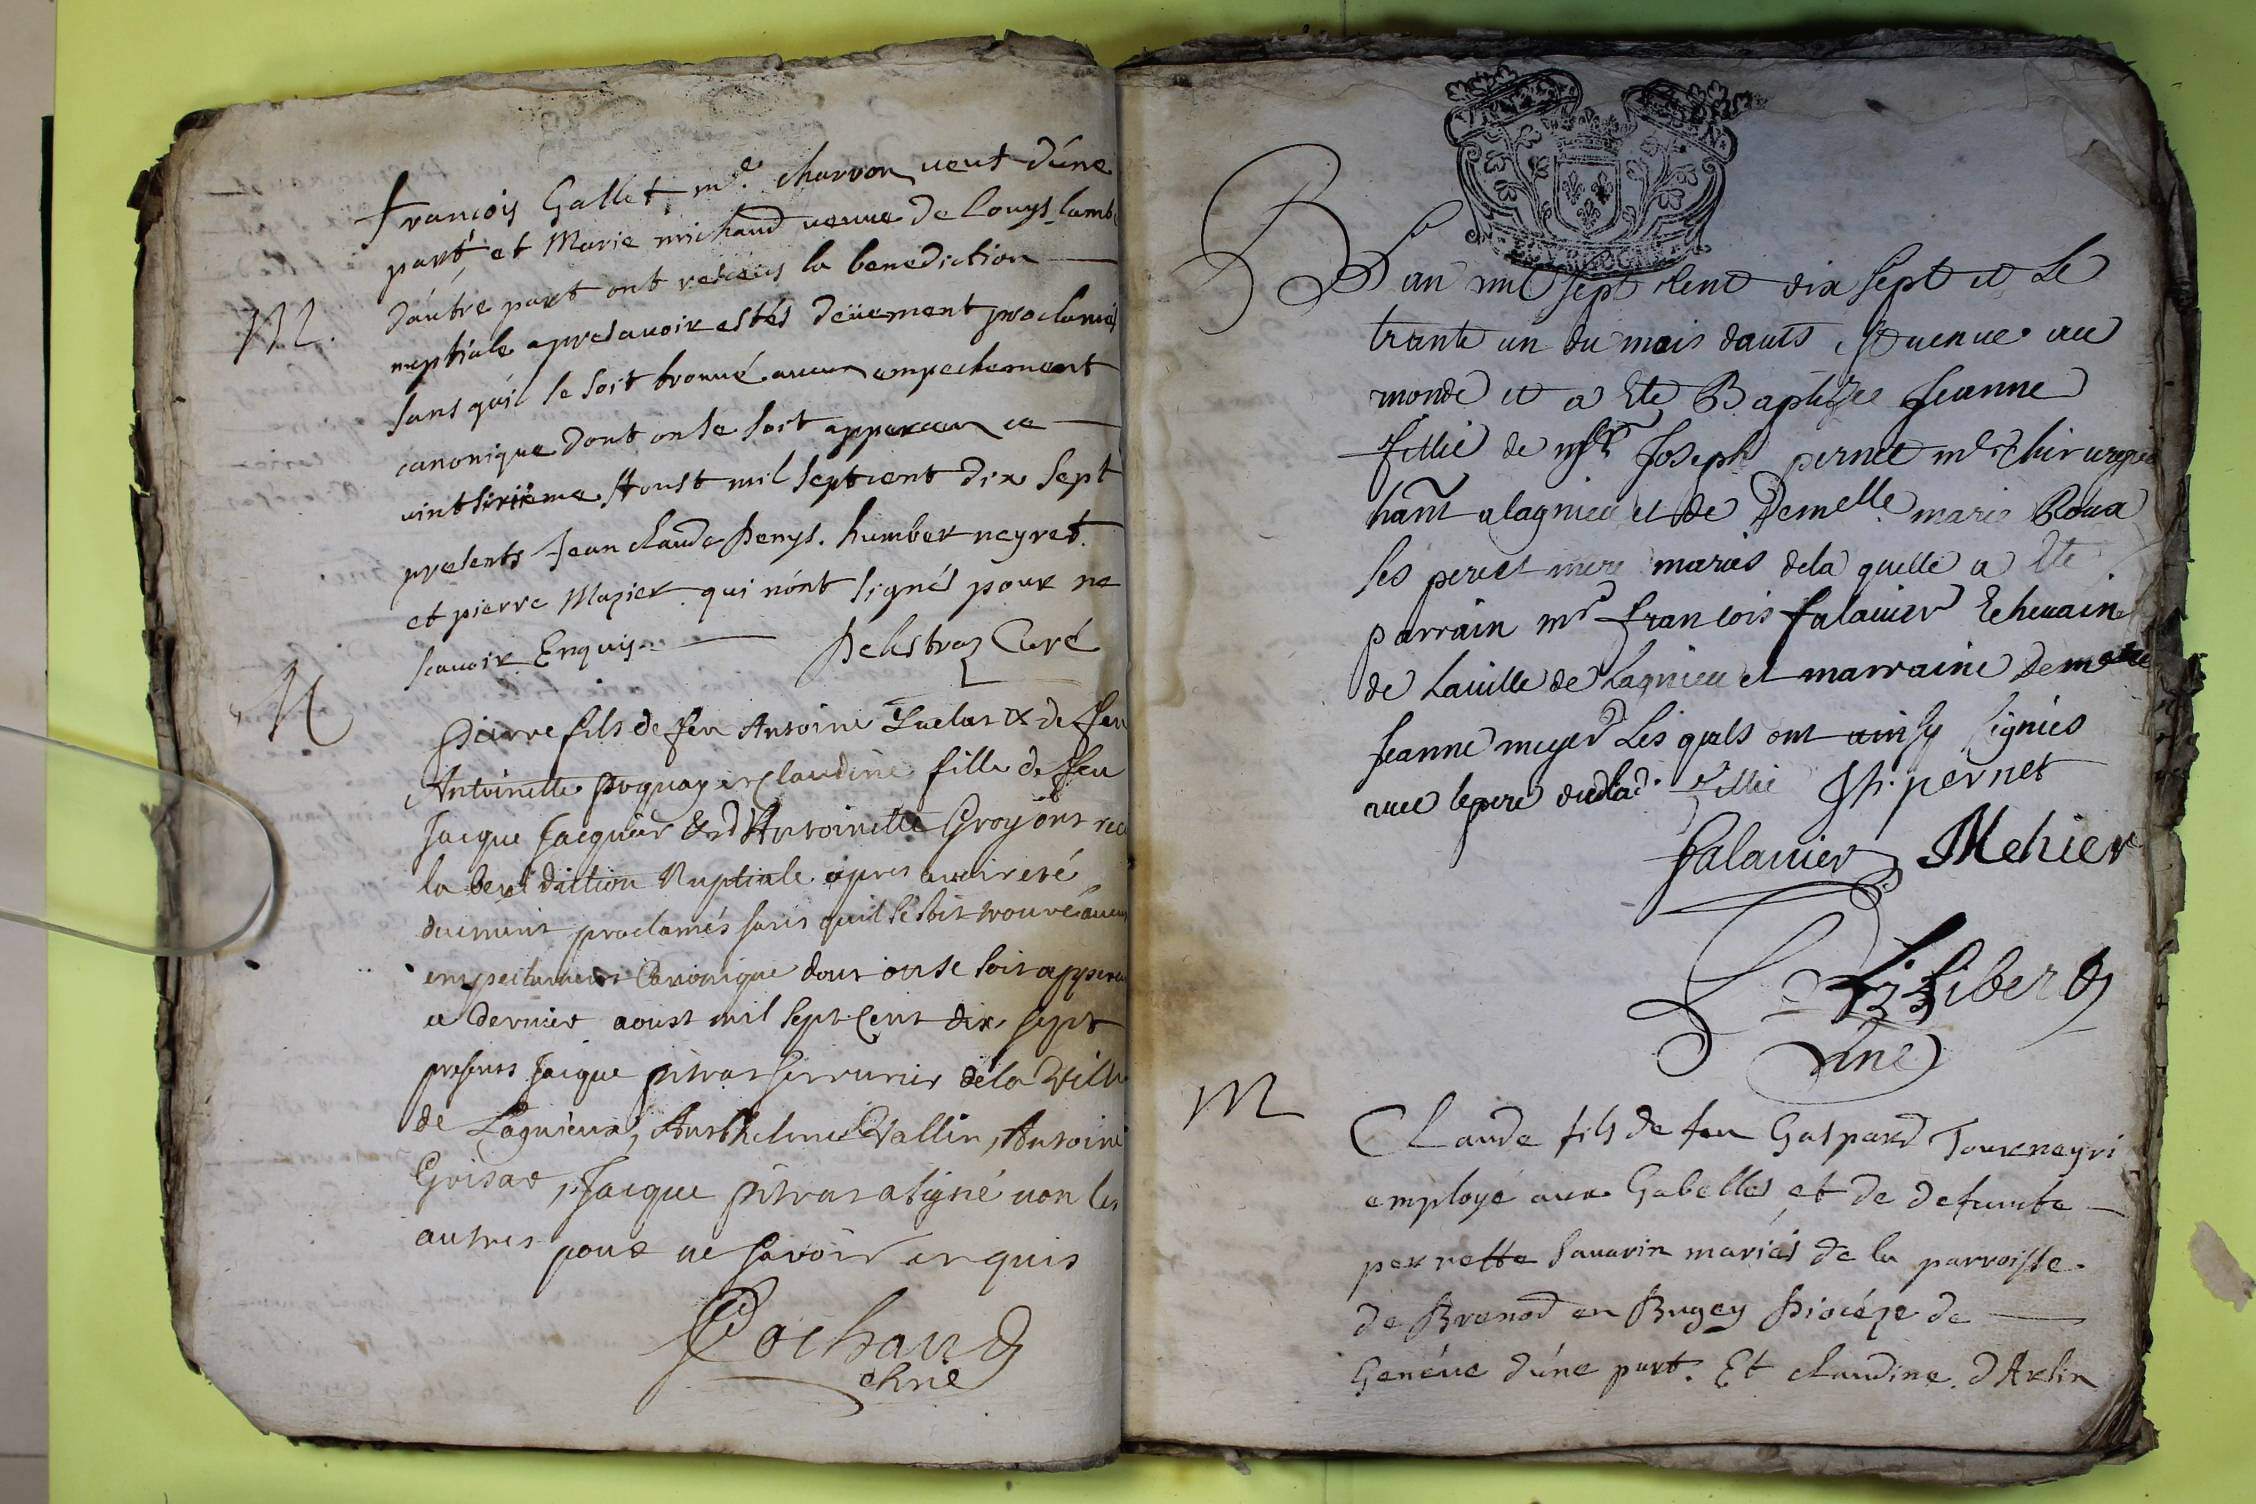 françois Gallet me charron veuf d'úne
part, et Marie michaud veuve de Louys Lamb
d'áutre part ont receus la benediction
M.
nuptiale apres avoir estés deüement proclamés
sans qu'il se soit trouué aucun empechement
canonique dont on se soit apperceu ce
vint sixiéme Aoust mil sept cent dix sept
presents Jean claude Denys. humber neyret.
et pierre Mazier qui n'ont signés pour ne
scauoir Enquis. Delestraz Curé
M
pierre fils de feu Antoine & de feu
Antoinette et claudine fille de feu
Jacque Jacquier & d'Antoinette Groz ont rec
la benediction Nuptiale apres avoir eté
duement proclamés sans qu'il se soit trouvé aucun
empechement Canonique dont on se soit apperceu
ce dernier aoust mil sept cent dix sept
presents Jacque pitrat serrurier de la ville
de Lagnieux, Anthelme Vallin, Antoine
Grisat, Jacque pitrat a signé non les
autres pour ne savoir enquis
Cochand
chne
B
L'an mil sept cent dix sept et Le
trante un du mois dauts est venue au
monde et a Ete Baptisee Jeanne
fillie de Joseph pernet me Chirurgien
hant a lagnieu et de Demelle marie Roux
ses pere et mere mariés de la quelle a Ete
parrain mr françois falavier Echevain
de Laville de Lagnieu et marraine Demelle
Jeanne meyer Les quels ont ainsy signiés
avec le pere de lad. fillie Jh. pernet
falavier J Mehier
Libert
M
Claude fils de feu Gaspard Tourneyri
employé aux Gabelles, et de defunte
perrette Savarin mariés de la parroisse.
de Brenod en Bugey Diocéze de
Genéve d'úne part. Et claudine d'Arlin